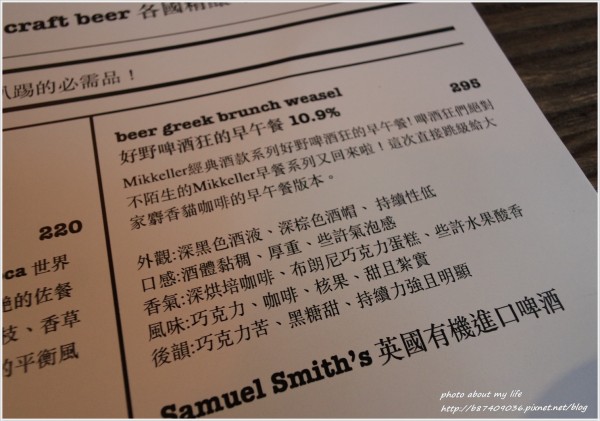 craft beer 各國精釀
趴踢的必需品！
beer greek brunch weasel 295
好野啤酒狂的早午餐 10.9%
Mikkeller經典酒款系列好野啤酒狂的早午餐!啤酒狂們絕對
不陌生的Mikkeller早餐系列又回來啦！這次直接跳級給大
家麝香貓咖啡的早午餐版本。
外觀:深黑色酒液、深棕色酒帽、持續性低
口感:酒體黏稠、厚重、些許氣泡感
香氣:深烘培咖啡、布朗尼巧克力蛋糕、些許水果酸香
風味:巧克力、咖啡、核果、甜且紮實
後韻:巧克力苦、黑糖甜、持續力強且明顯
Samuel Smith's 英國有機進口啤酒
220
ca 世界
的佐餐
枝、香草
的平衡風
photo about my life
http://b87409036.pixnet.net/blog